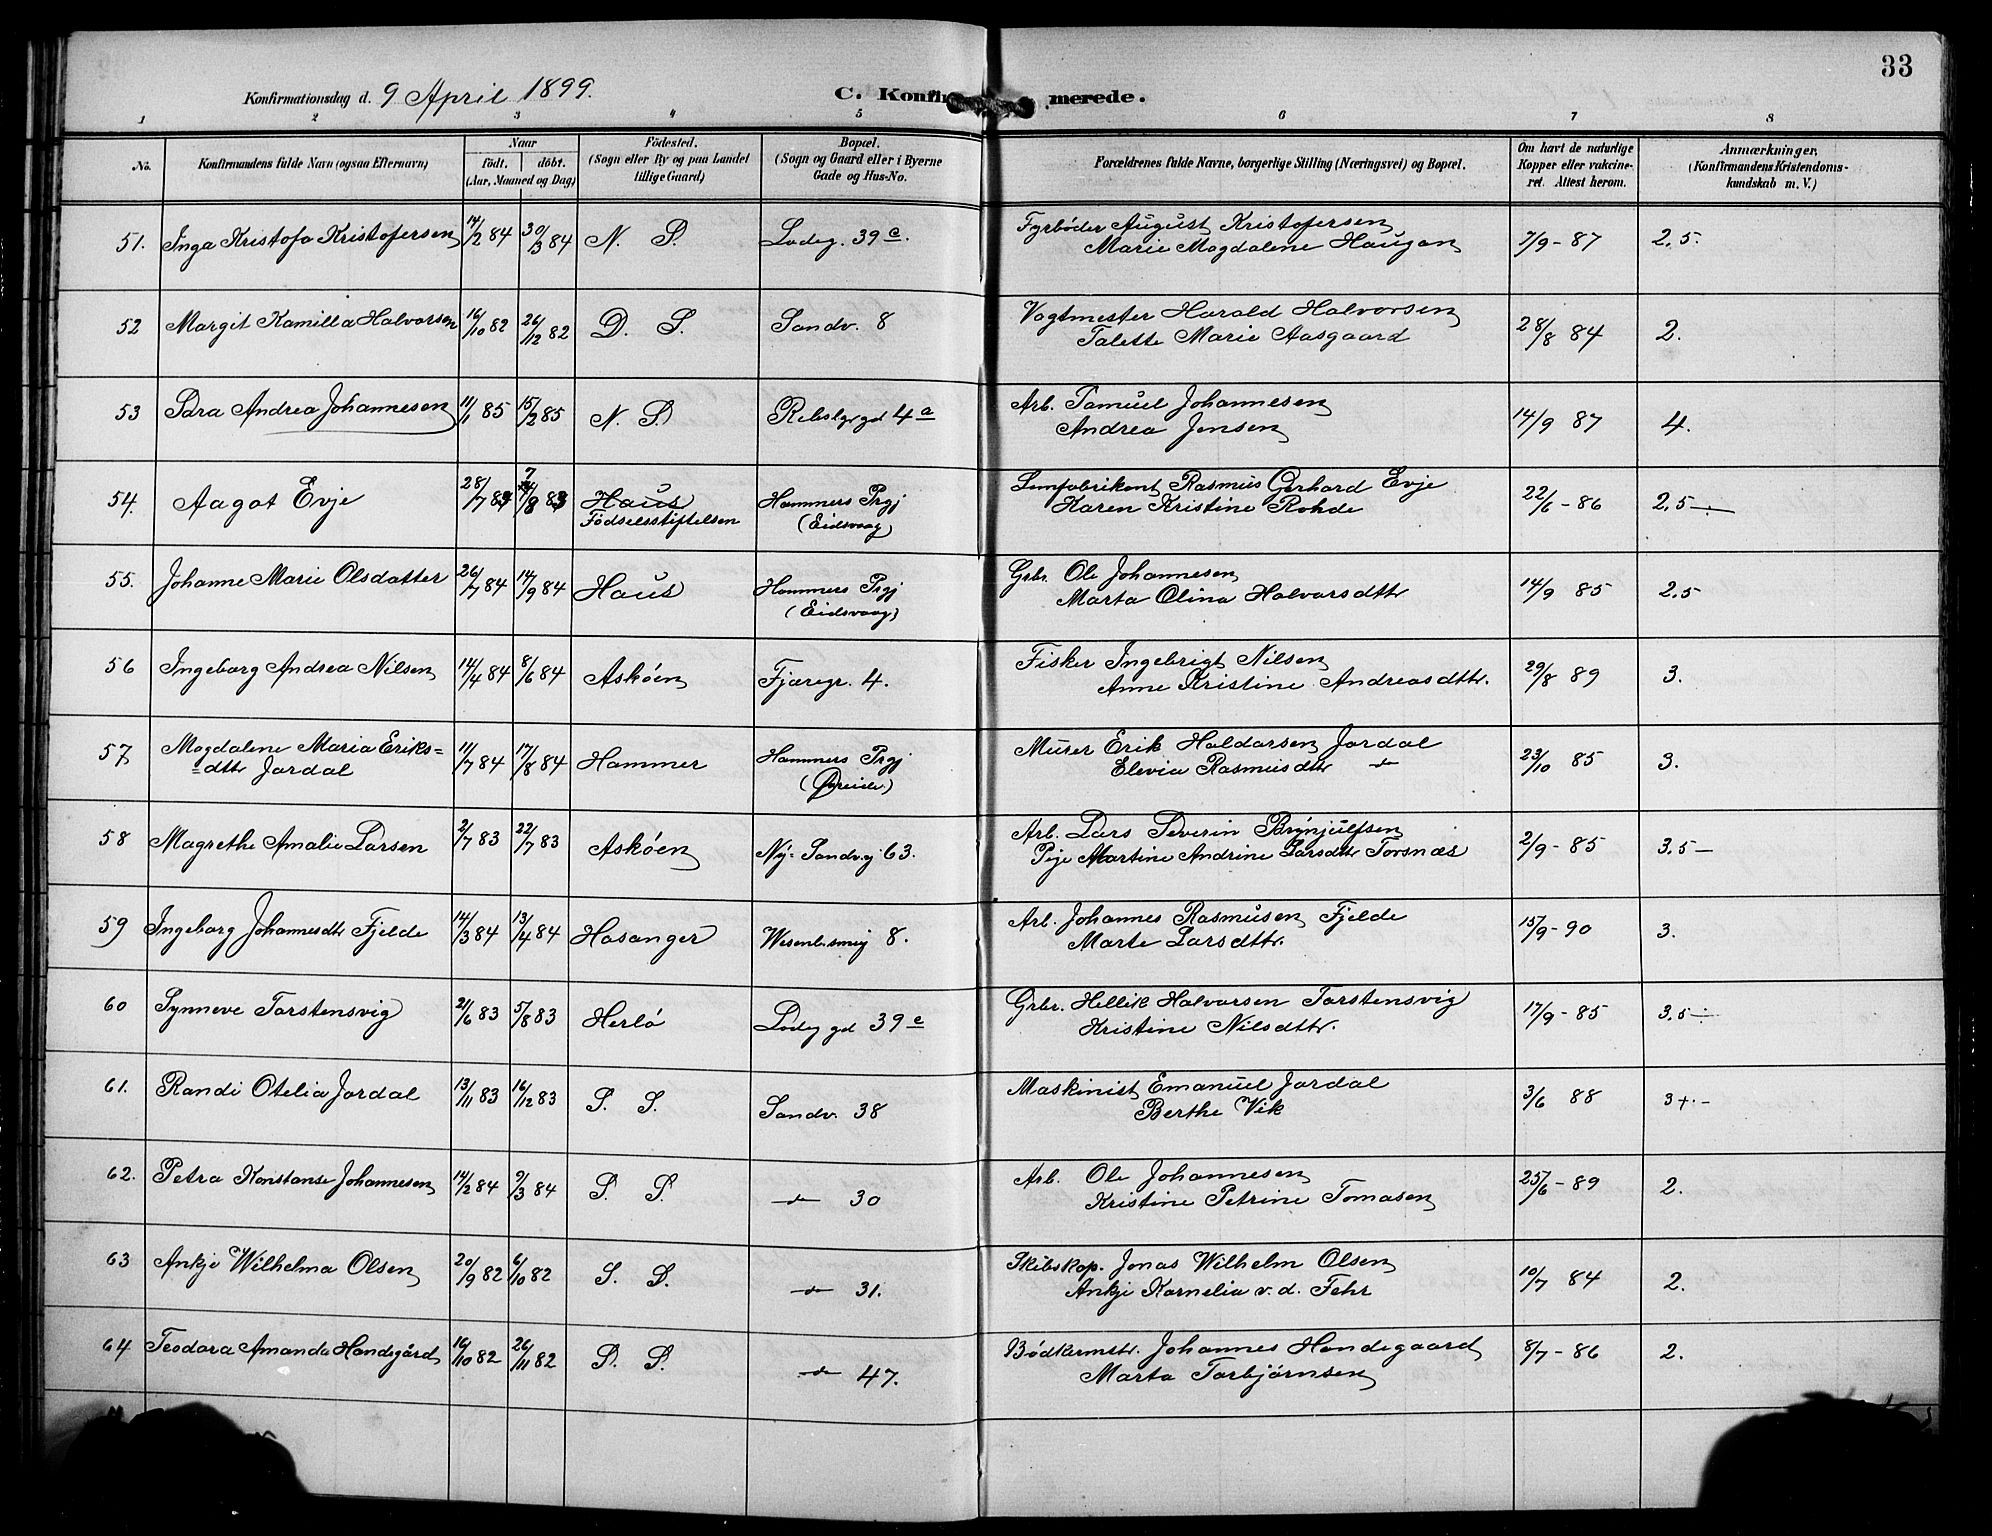 33
Konfirmationsdag d. 9 April 1899.
C. Konfir merede.
1 2 3 4 5 6 7 8
No.
Konfirmandens fulde Navn (ogsaa Efternavn)
Naar
födt. döbt.
(Aar, Maaned og Dag)
Födested.
(Sogn eller By og paa Landet
tillige Gaard)
Bopæl.
(Sogn og Gaard eller i Byerne
Gade og Hus-No.
Forældrenes fulde Navne, borgerlige Stilling (Næringsvei) og Bopæl.
Om havt de naturlige
Kopper eller vakcine-
ret. Attest herom.
Anmærkninger,
(Konfirmandens Kristendoms-
kundskab m. V.)
51. Inga Kristofa Kristofersen 14/2 84 30/3 84 N. S. Ladeg. 39 c. Fyrbøder August Kristofersen 7/9 - 87 2,5.
Marie Magdalene Haugan
52 Margit Kamilla Halvorsen 16/10 82 26/12 82 D. S. Sandv. 8 Vagtmester Harald Halvorsen 28/8 84 2.
Talette Marie Aasgaard
53 Sara Andrea Johannesen 11/1 85 15/2 85 N. S. Rebslgrgd 4 a Arb. Samuel Johannesen 14/9 87 4.
Andrea Jensen
54. Aagot Evje 28/7 83 7/8 83 Haus Hammers Prgj Sæmfabrikent Rasmus Gerhard Evje 22/6 - 86 2,5 -
Födselsstiftelsen (Eidsvaag) Karen Kristine Rohde
55. Johanne Marie Olsdatter 26/7 84 14/9 84 Haus Hammers Prgj Grbr. Ole Johannesen 14/9 85 2,5
(Eidsvaag) Marta Olina Halvorsdttr
56 Ingeborg Andrea Nilsen 14/4 84 8/6 84 Askøen Fjæregr. 4. Fisker Ingebrigt Nilsen 29/8 89 3.
Anne Kristine Andreasdttr.
57 Magdalene Maria Eriks= 11/7 84 17/8 84 Hammer Hammers Prgj Murer Erik Haldorsen Jordal 23/10 85 3.
=dttr Jordal (Øvreide) Elevia Rasmusdttr do
58 Magrethe Amalie Larsen 2/7 83 22/7 83 Askøen Ny-Sandvej 63. Arb. Lars Severin Brynjulfsen 2/9 - 85 3,5 -
Pije Martine Andrine Larsdttr Torsnæs
59 Ingeborg Johannesdtr Fjelde 14/3 84 13/4 84 Hosanger Wesenb.smug 8. Arb. Johannes Rasmusen Fjelde 15/9 - 90 3.
Marte Larsdttr.
60 Synneve Torstensvig 21/6 83 5/8 83 Herlø Ladeggd 39 e Grbr. Hellik Halvorsen Torstensvig 17/9 - 85 3,5 -
Kristine Nilsdttr.
61. Randi Otelia Jordal 13/11 83 16/12 83 S. S. Sandv. 38 Maskinist Emanuel Jordal 3/6 88 3+. -
Berthe Vik
62. Petra Konstanse Johannesen 14/2 84 9/3 84 S. S. do 30 Arb. Ole Johannesen 25/6 - 89 2.
Kristine Petrine Tomasen
63 Ankje Wilhelma Olsen 20/9 82 6/10 82 S. S. do 31. Skibskap. Jonas Wilhelm Olsen 10/7 84 2.
Ankje Kornelia v. d. Fehr
64 Teodora Amanda Handegård 16/10 82 26/11 82 S. S. do 47. Bødkermstr. Johannes Handegaard 8/7 - 86 2.
Marta Torbjørnsen